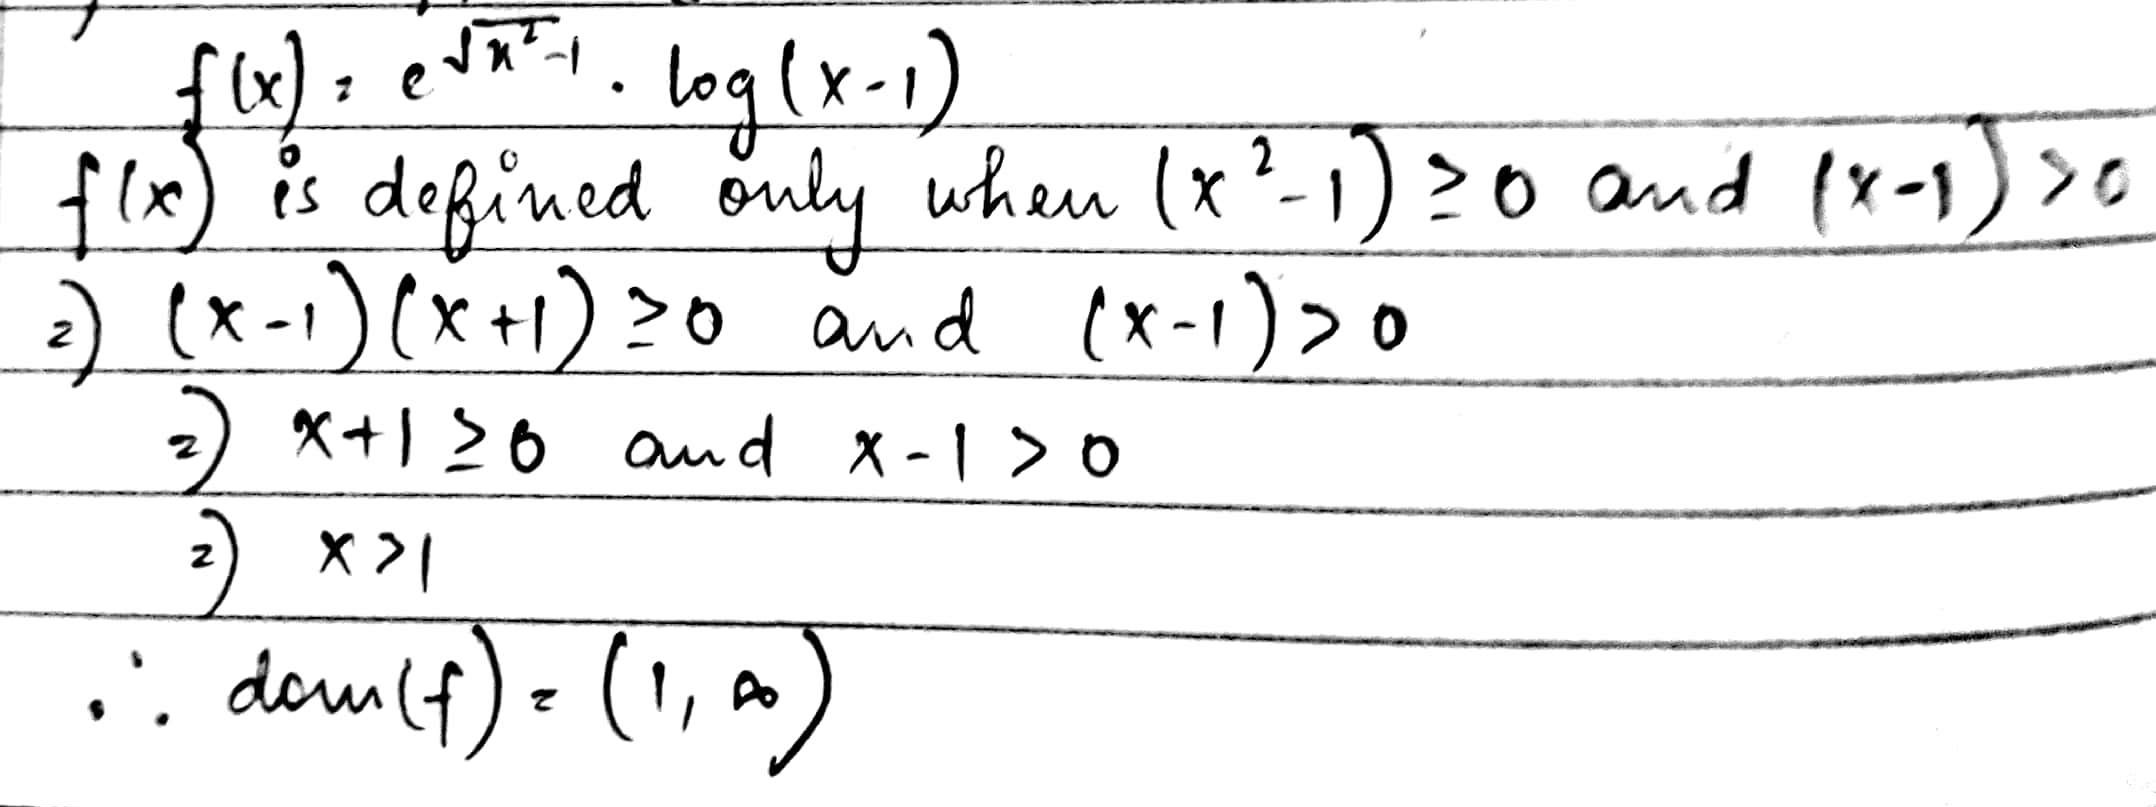 f(x) = e^√(x²-1) . log(x-1)
f(x) is defined only when (x²-1) ≥ 0 and (x-1) > 0
⇒ (x-1)(x+1) ≥ 0 and (x-1) > 0
⇒ x+1 ≥ 0 and x-1 > 0
⇒ x > 1
∴ dom(f) = (1, ∞)